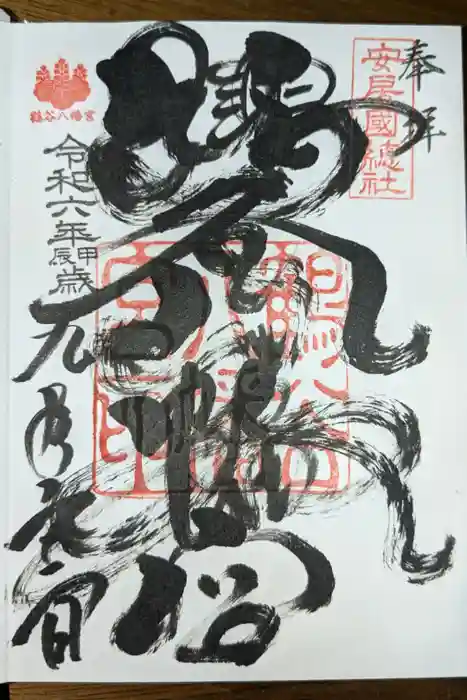 奉拝
安房國總社
鶴谷八幡宮
鶴谷八幡宮
令和六年甲辰歳
元月元日